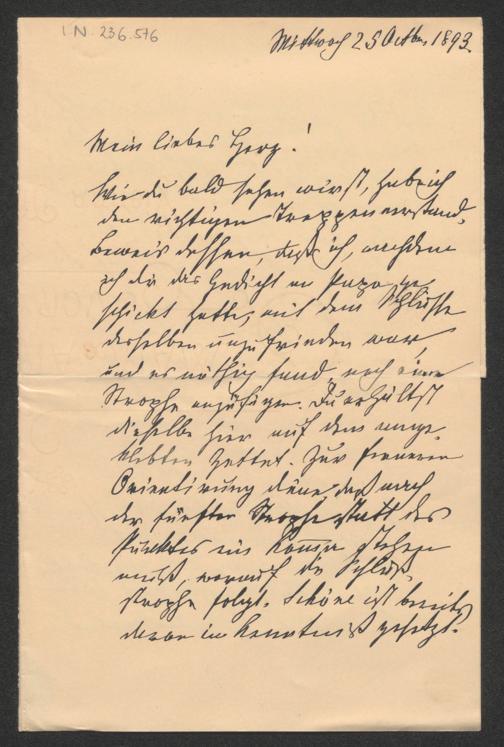 I.N. 236.576
Mittwoch 25 Octbr. 1893.
Mein liebes Herz!
Wie du bald sehen wirst, habe ich
den richtigen Treppenverstand.
Beweis dessen, daß ich, nachdem
ich dir das Gedicht an Papa ge
schickt hatte, mit dem Schlusse
desselben unzufrieden war,
und es nöthig fand noch eine
Strophe anzufügen. Du erhältst
dieselbe hier auf dem ange
klebten Zettel. Zur ferneren
Orientirung diene, daß nach
der fünften Strophe statt des
Punktes ein Komma stehen
muß, worauf die Schluß
strophe folgt. Schöne ist bereits
davon in Kenntniß gesetzt.